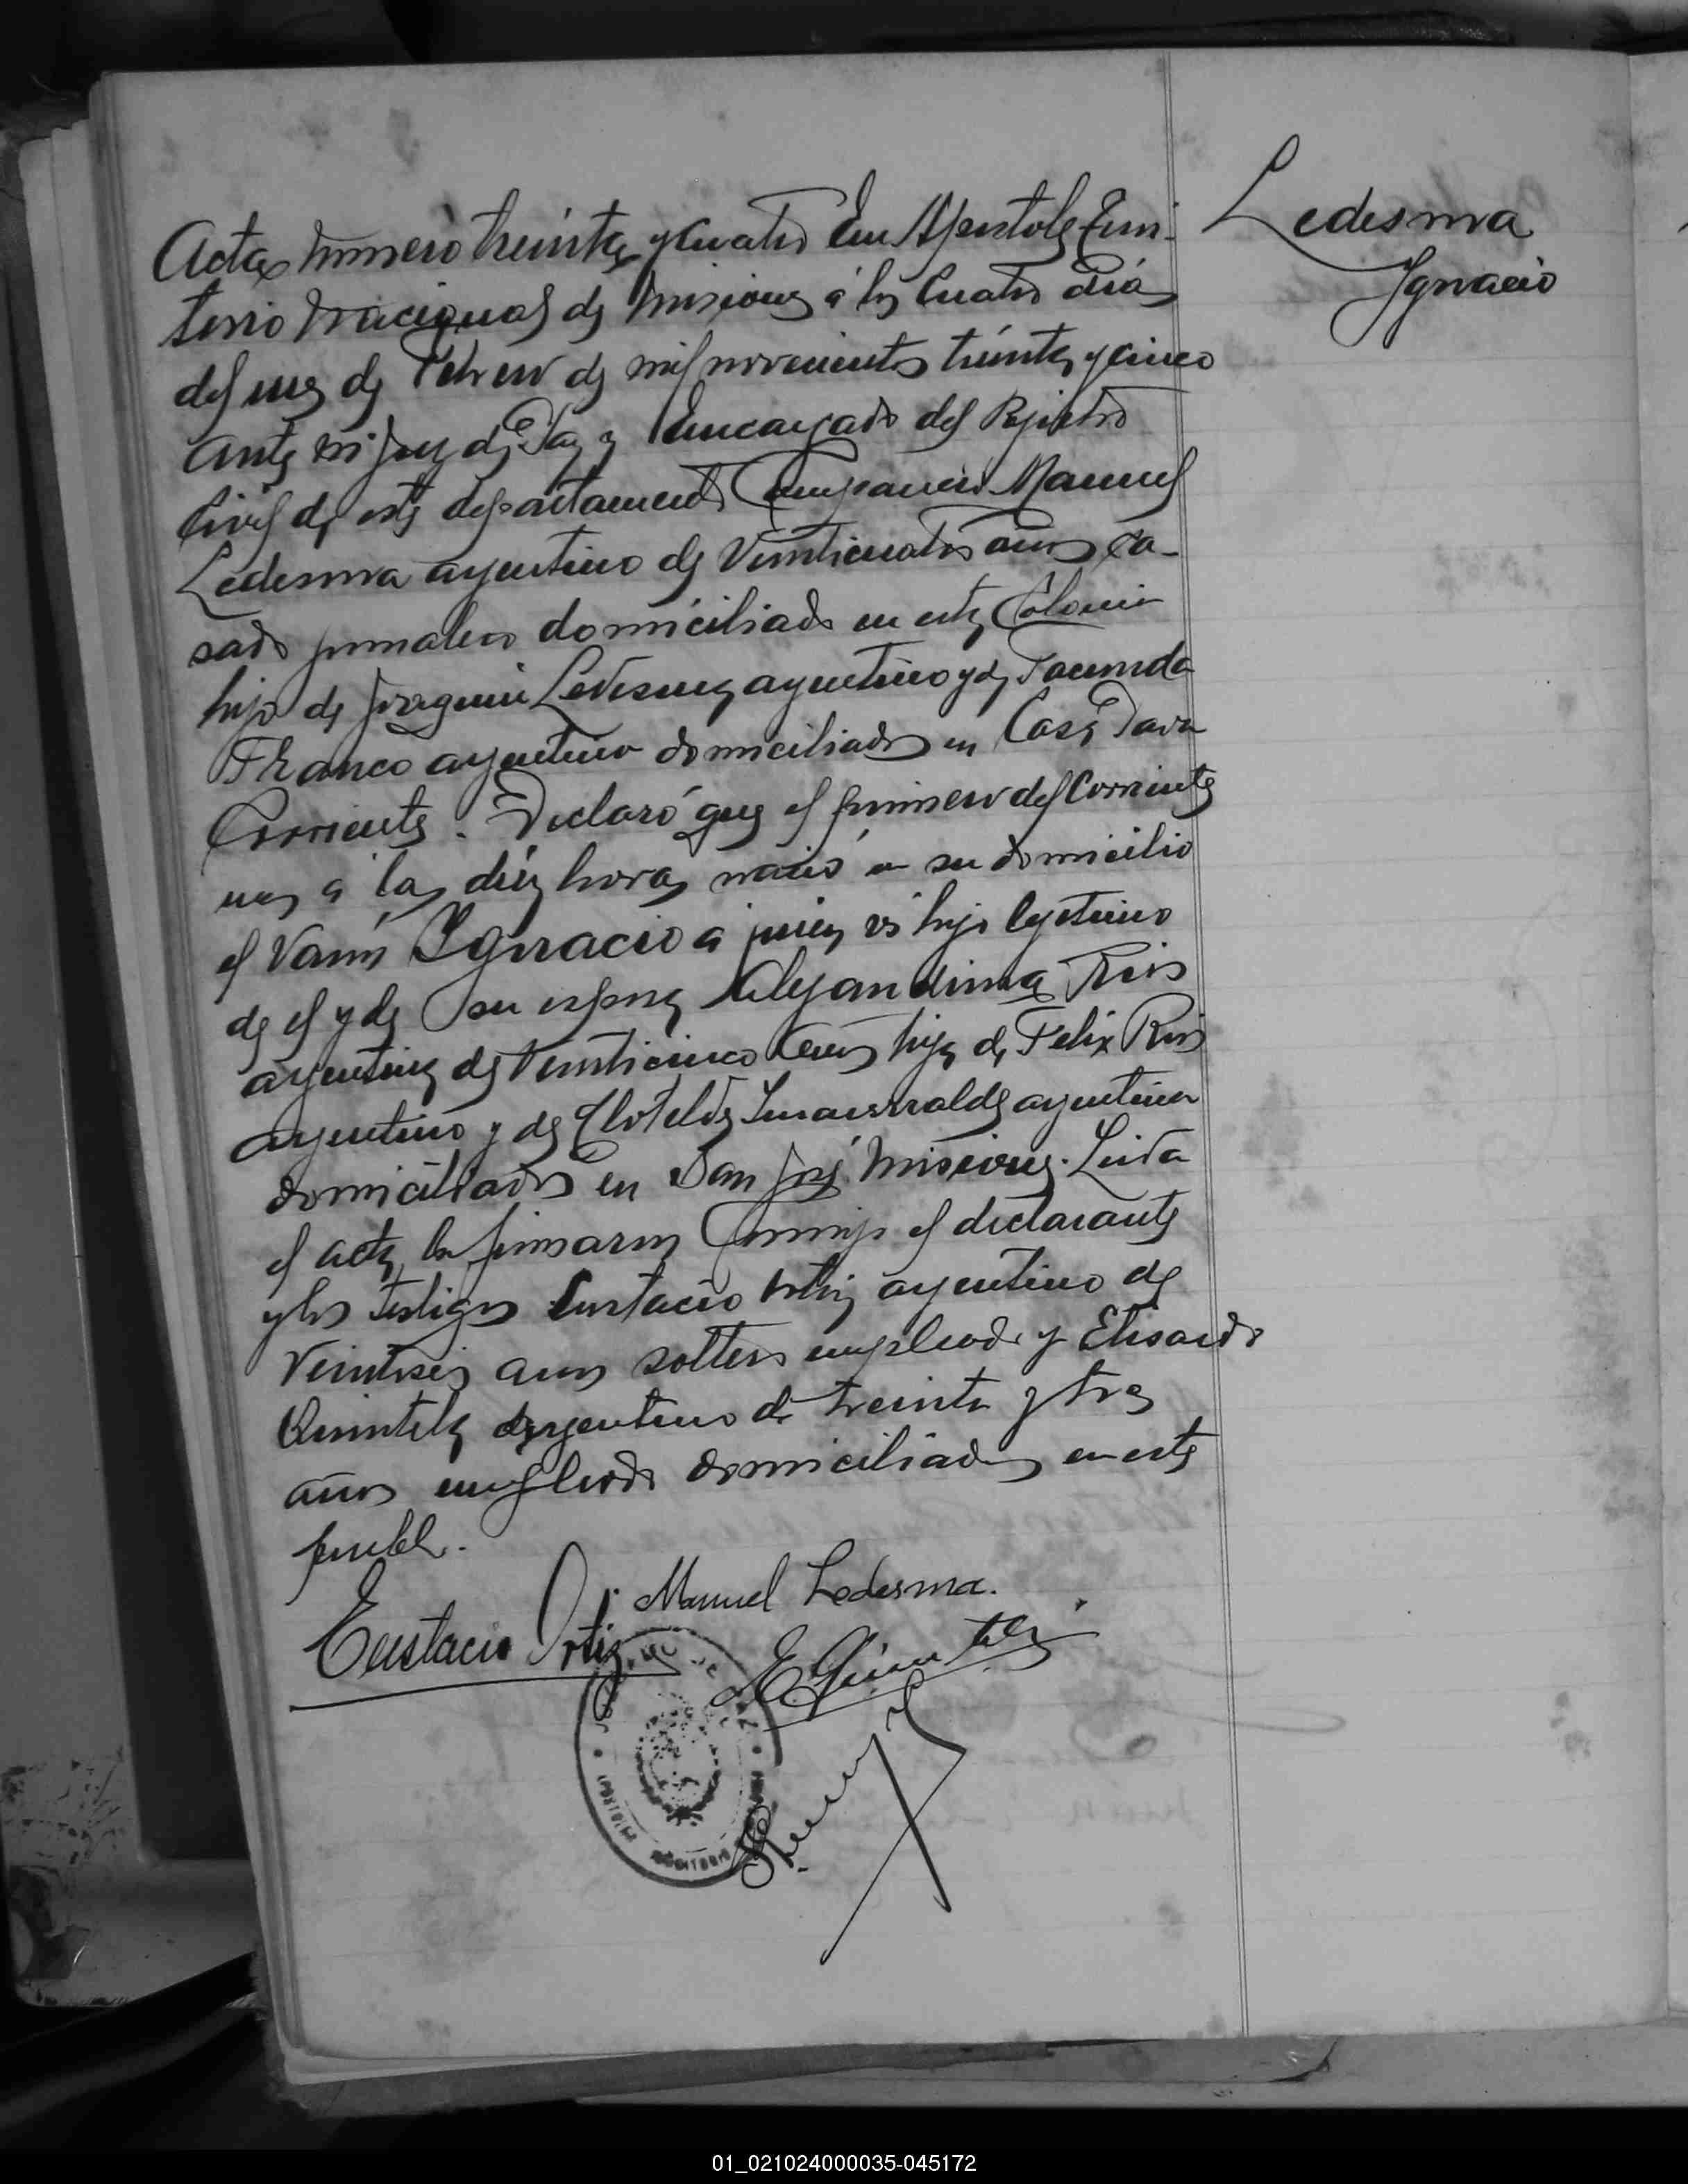 Acta número treinta y cuatro En Apostoles Terri-
torio Nacional de Misiones á los Cuatro días
del mes de Febrero de mil novecientos treinta y cinco
ante mi Juez de Paz y Encargado del Rejistro
Civil de este departamento Compareció Manuel
Ledesma argentino de Veinticuatro años ca-
sado jornalero domiciliado en esta Colonia
hijo de Joaquin Ledesma argentino y de Facunda
Franco argentina domiciliados en Casa Pava
Corrientes. Declaró que el primero del Corriente
mes a las diéz horas nació en su domicilio
el Varón Ignacio a quien vi hijo legitimo
de el y de su esposa Alejandrina Rios
argentina de Veinticinco años hija de Felix Rios
argentino y de Clotelde argentina
domiciliados en San José Misiones. Leida
el acta la firmaron Conmigo el declarante
y los testigos Eustacio Ortiz argentino de
Veintiseis años soltero empleado y Elisardo
Quintela argentino de treinta y tres
años empleado domiciliados en este
pueblo.
Manuel Ledesma.
Eustacio Ortiz
E Quintela
JUZGADO DE PAZ
APOSTOLES MISIONES
Ledesma
Ignacio
01_021024000035-045172